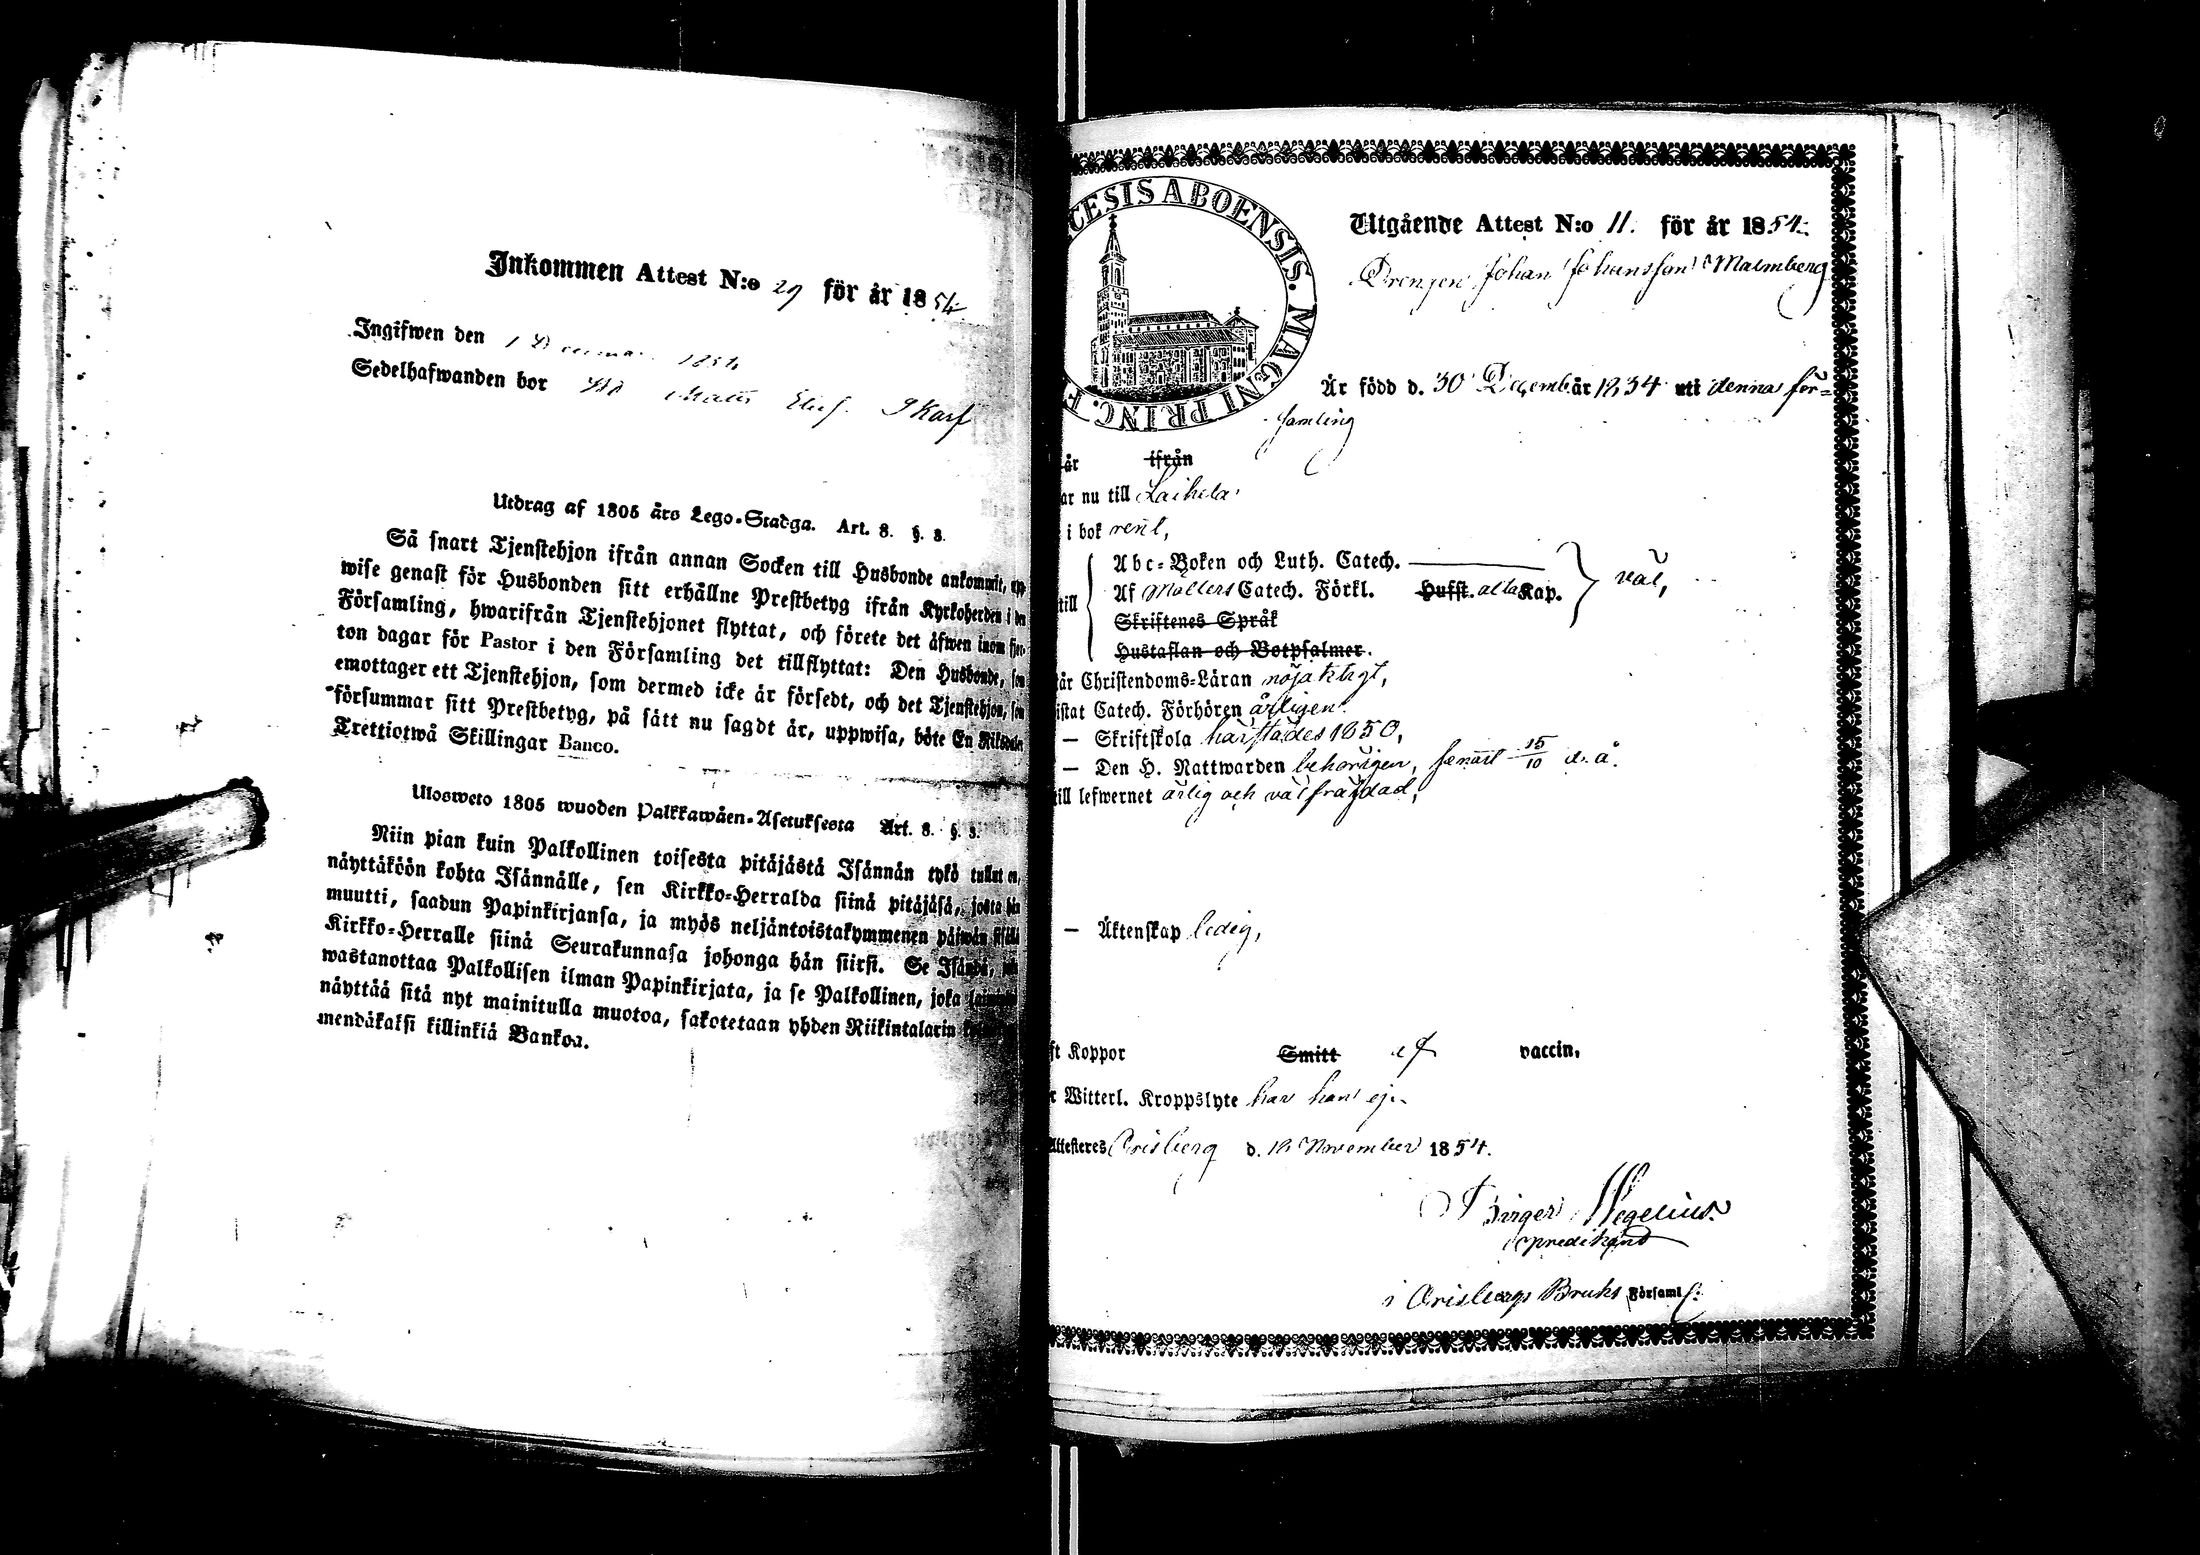 Inkommen Attest N:o 29 för år 1854.
Ingifwen den 1 December 1854
Sedelhafwanden bor
Utdrag af 1805 års Lego-Stadga. Art. 8. §. 3.
Så snart Tjenstehjon ifrån annan Socken till Husbonde ankommit, upp-
wise genast för Husbonden sitt erhållne Prestbetyg ifrån Kyrkoherden i den
Församling, hwarifrån Tjenstehjonet flyttat, och förete det äfwen inom fjor-
ton dagar för Pastor i den Församling det tillflyttat: Den Husbonde, som
emottager ett Tjenstehjon, som dermed icke är försedt, och det Tjenstehjon, som
försummar sitt Prestbetyg, på sätt nu sagdt är, uppwisa, böte En Riksdaler
Trettiotwå Skillingar Banco.
Ulosweto 1805 wuoden Palkkawäen-Asetuksesta Art. 8. §. 3.
Niin pian kuin Palkollinen toisesta pitäjästä Isännän tykö tullut on,
näyttäköön kohta Isännälle, sen Kirkko-Herralda siinä pitäjäsä, josta hän
muutti, saadun Papinkirjansa, ja myös neljäntoistakymmenen päiwän sisällä
Kirkko-Herralle siinä Seurakunnasa johonga hän siirsi. Se Isändä, joka
wastanottaa Palkollisen ilman Papinkirjata, ja se Palkollinen, joka
näyttää sitä nyt mainitulla muotoa, sakotetaan yhden Riikintalarin
mendäkaksi killinkiä Bankoa.
CESIS ABOENSIS. MAGNI PRINC. F
Utgående Attest N:o 11. för år 1854.
Drengen Johan Johansson Malmberg
Är född d. 30 Decemb. år 1834 uti denna för-
samling
är ifrån
ar nu till Laihela
i bok rent,
till
Abc-Boken och Luth. Catech.
Af Möllers Catech. Förkl. Hufst. alla Kap. } väl,
Skriftenes Språk
Hustaflan och Botpsalmer.
år Christendoms-Läran nöjaktigt,
istat Catech. Förhören årligen
— Skriftskola härstädes 1850,
— Den H. Nattwarden behörigen, senast 15/10 d. å.
till lefwernet ärlig och välfräjdad,
— Äktenskap ledig,
ft Koppor Smitt af vaccin.
r Witterl. Kroppslyte har han ej.
Attesteres Orisberg d. 18 November 1854.
Birger Hegelius.
predikant
i Orisbergs Bruks Församl.